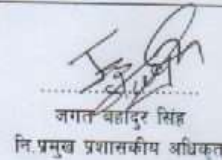 जगत बहादुर सिंह
नि.प्रमुख प्रशासकीय अधिकृत